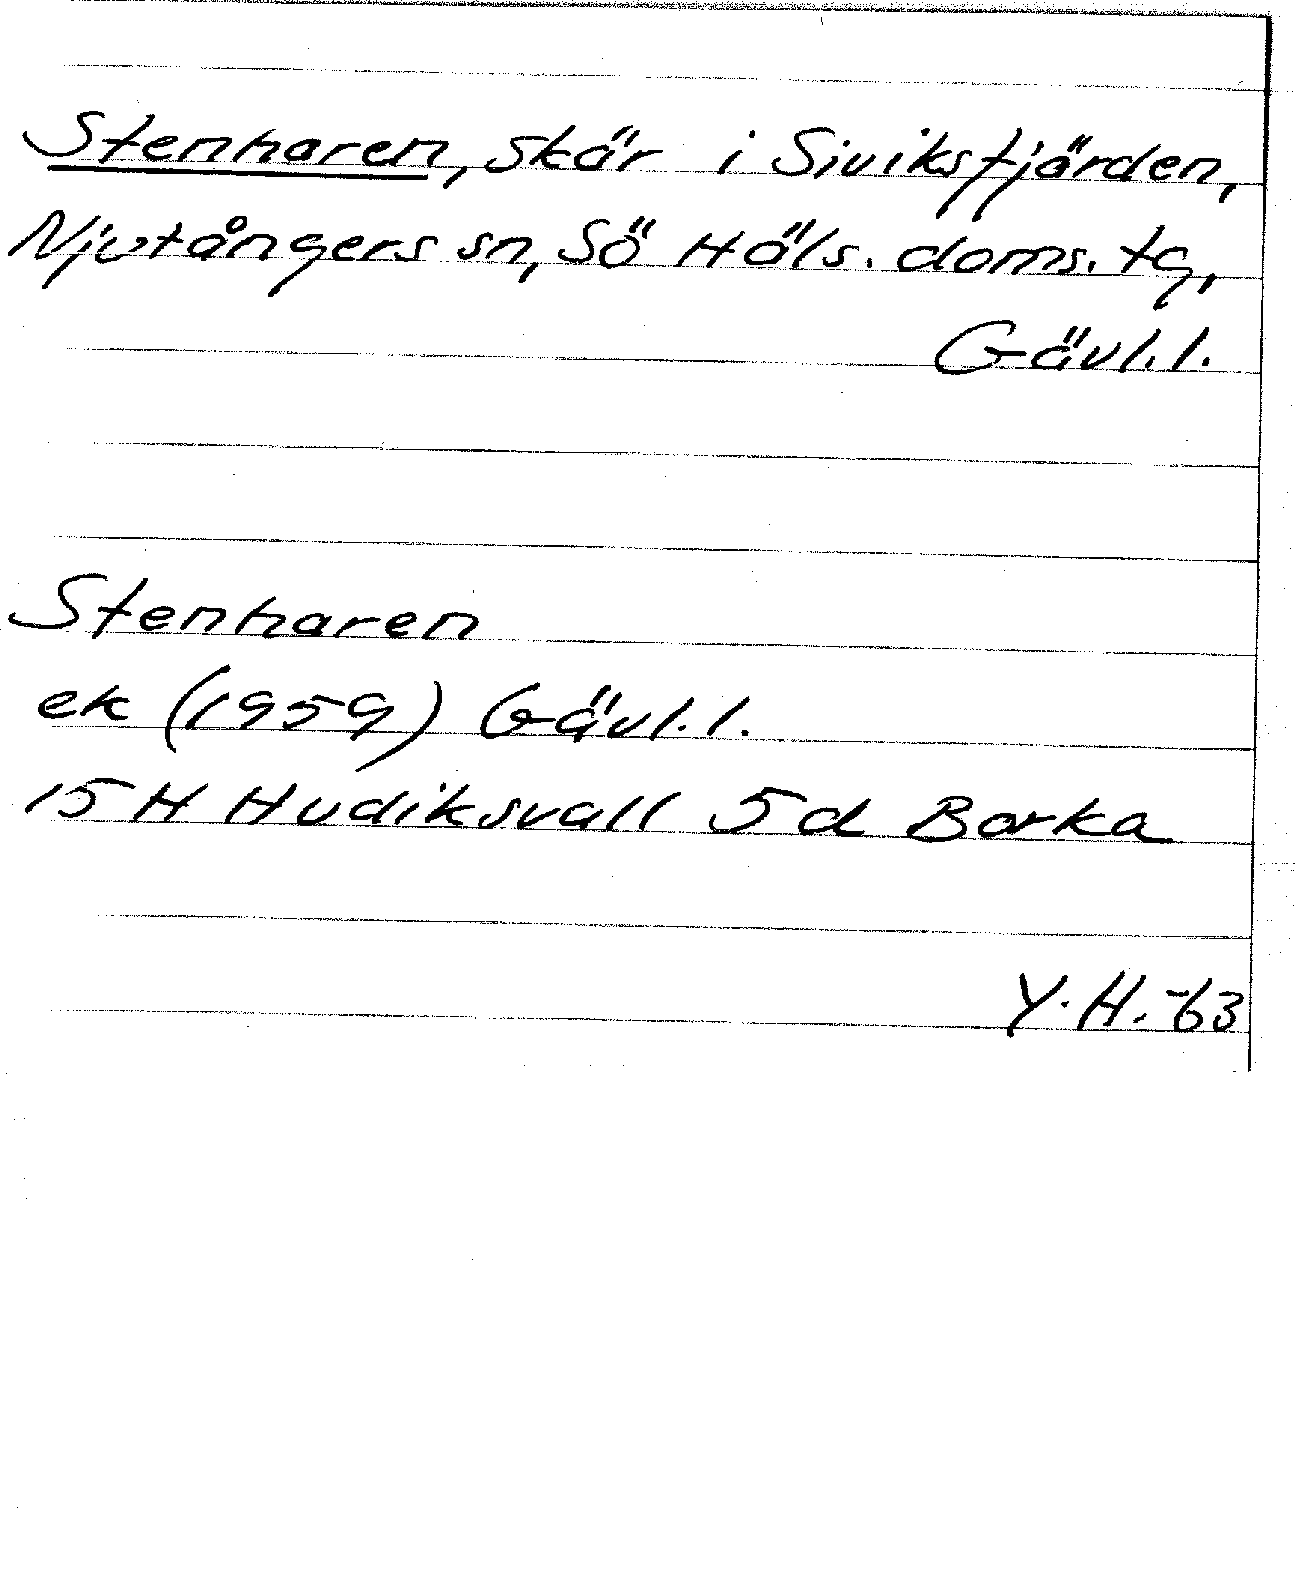 Stenharen, skär i Siviksfjärden,
Njutångers sn, Sö Häls. doms. tg,
Gävl. l.
Stenharen
ek (1959) Gävl. l.
15 H Hudiksvall 5d Borka
Y. H. -63